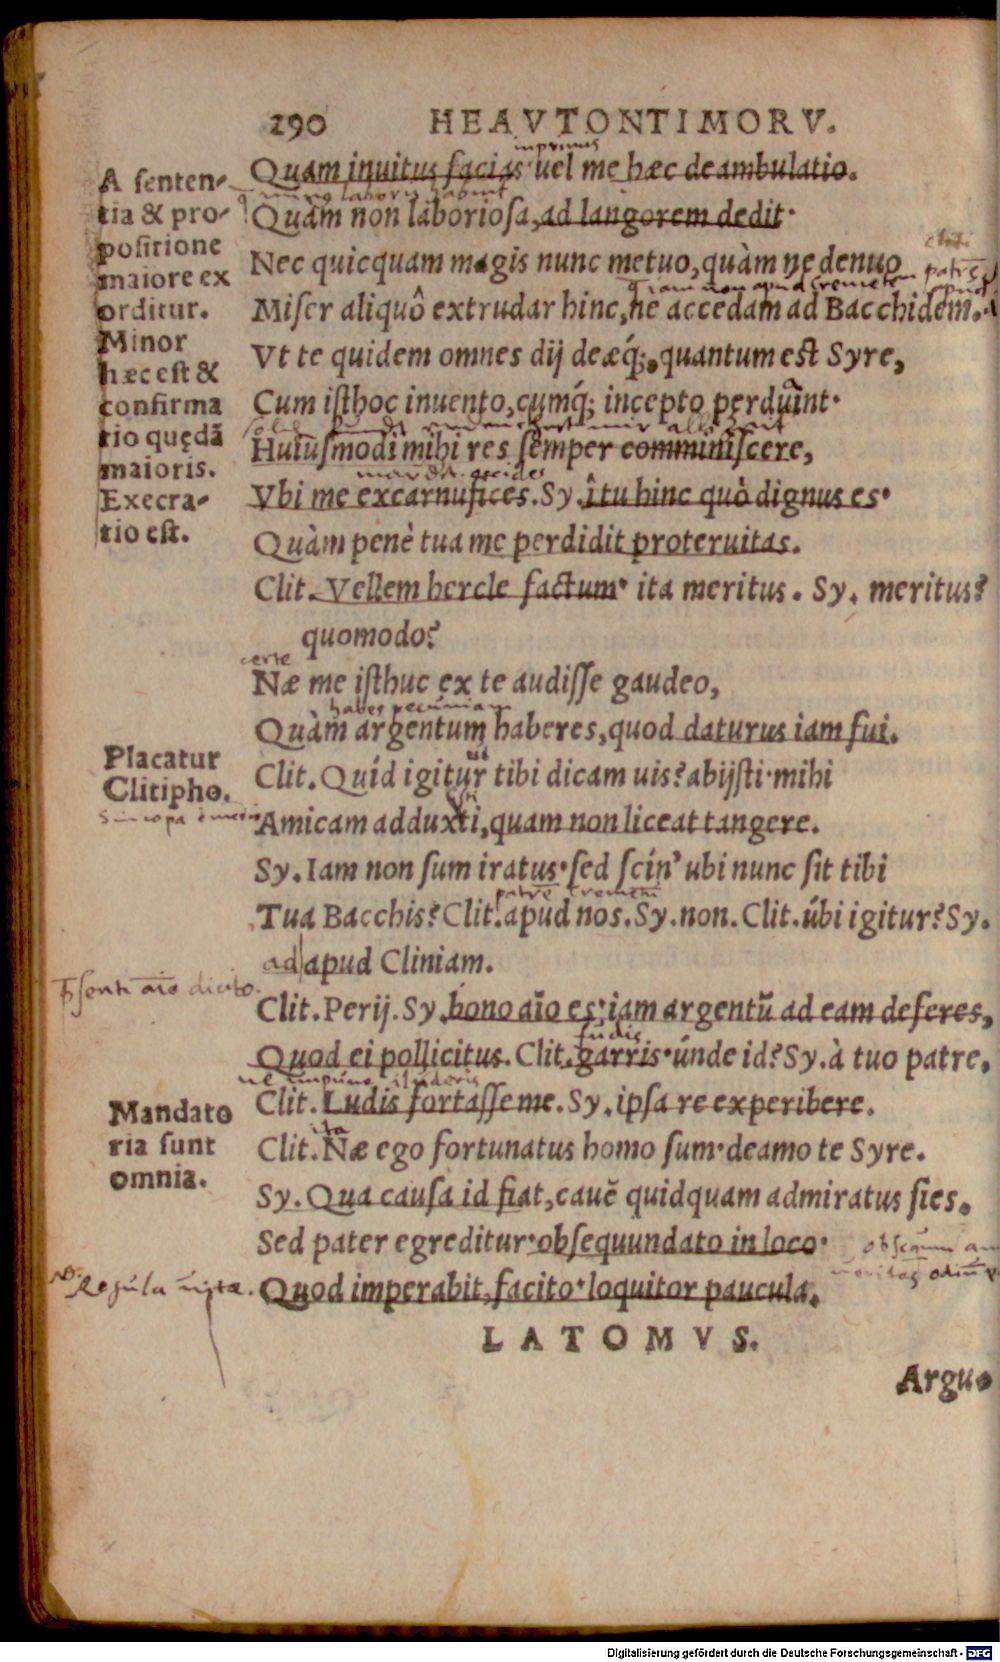 290 HEAVTONTIMORV.
A senten-
tia & pro-
positione
maiore ex
orditur.
Minor
hæc est &
confirma
tio quędã
maioris.
Execra-
tio est.
Quam inuitus facias· uel me hæc deambulatio.
Quàm non laboriosa, ad langorem dedit·
Nec quicquam magis nunc metuo, quàm ne denuo
Miser aliquô extrudar hinc, ne accedam ad Bacchidem.
Vt te quidem omnes dij deæq́;, quantum est Syre,
Cum isthoc inuento, cumq́; incepto perduint·
Huiusmodi mihi res semper comminiscere,
Vbi me excarnufices. Sy. î tu hinc quò dignus es·
Quàm penè tua me perdidit proteruitas.
Clit. Vellem hercle factum· ita meritus. Sy. meritus?
quomodo?
certe
Næ me isthuc ex te audisse gaudeo,
habes pecuniam
Quàm argentum haberes, quod daturus iam fui.
Placatur
Clitipho.
Clit. Quíd igitur tibi dicam uis? abijsti· mihi
Amicam adduxti, quam non liceat tangere.
Sy. Iam non sum iratus· sed scín' ubi nunc sit tibi
Tua Bacchis? Clit. apud nos. Sy. non. Clit. úbi igitur? Sy.
ad apud Cliniam.
Clit. Perij. Sy. bono aĩo es· iam argentũ ad eam deferes,
Quod ei pollicitus. Clit. garris· únde id? Sy. à tuo patre.
Mandato
ria sunt
omnia.
Clit. Ludis fortasse me. Sy. ipsa re experibere.
ita
Clit. Næ ego fortunatus homo sum· deamo te Syre.
Sy. Qua causa id fiat, cauẽ quidquam admiratus sies.
Sed pater egreditur· obsequundato in loco·
Regula uitæ.
Quod imperabit, facito· loquitor paucula.
LATOMVS.
Argu-
Digitalisierung gefördert durch die Deutsche Forschungsgemeinschaft - DFG